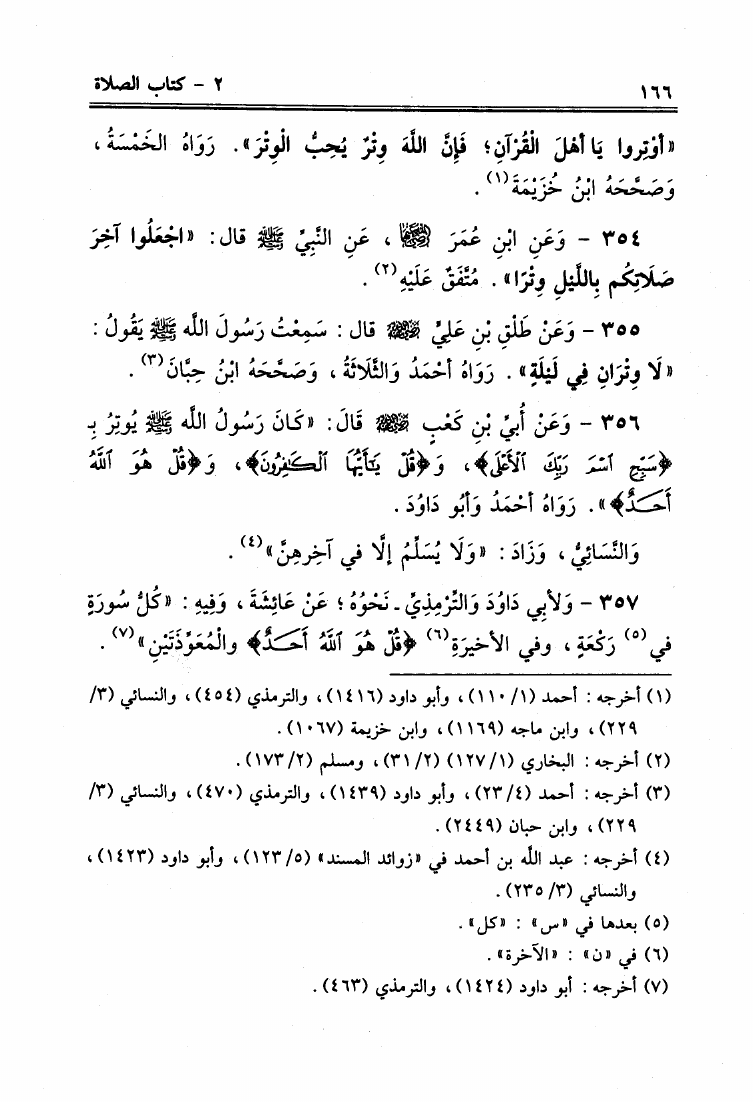 ١٦٦ ٢ - كتاب الصلاة
«أَوْتِروا يَا أَهْلَ الْقُرْآنِ؛ فَإِنَّ اللَّهَ وِتْرٌ يُحِبُّ الْوِتْرَ». رَوَاهُ الخَمْسَةُ،
وَصَحَّحَهُ ابْنُ خُزَيْمَةَ(١).
٣٥٤ - وَعَنِ ابْنِ عُمَرَ ﵄، عَنِ النَّبِيِّ ﷺ قال: «اجْعَلُوا آخِرَ
صَلَاتِكُم بِاللَّيْلِ وِتْرًا». مُتَّفَقٌ عَلَيْهِ(٢).
٣٥٥ - وَعَنْ طَلْقِ بْنِ عَلِيٍّ ﵁ قال: سَمِعْتُ رَسُولَ الله ﷺ يَقُولُ:
«لَا وِتْرَانِ فِي لَيْلَةٍ». رَوَاهُ أَحْمَدُ وَالثَّلَاثَةُ، وَصَحَّحَهُ ابْنُ حِبَّانَ(٣).
٣٥٦ - وَعَنْ أُبَيِّ بْنِ كَعْبٍ ﵁ قَالَ: «كَانَ رَسُولُ الله ﷺ يُوتِرُ بِـ
﴿سَبِّحِ ٱسْمَ رَبِّكَ ٱلْأَعْلَى﴾، وَ﴿قُلْ يَـٰٓأَيُّهَا ٱلْكَـٰفِرُونَ﴾، وَ﴿قُلْ هُوَ ٱللَّهُ
أَحَـدٌ﴾». رَوَاهُ أَحْمَدُ وَأَبُو دَاوُدَ.
وَالنَّسَائِيُّ، وَزَادَ: «وَلَا يُسَلِّمُ إِلَّا في آخِرِهِنَّ»(٤).
٣٥٧ - وَلأبِي دَاوُدَ وَالتِّرْمِذِيِّ ـ نَحْوُهُ؛ عَنْ عَائِشَةَ، وَفِيهِ: «كُلُّ سُورَةٍ
في(٥) رَكْعَةٍ، وفي الأخيرَةِ(٦) ﴿قُلْ هُوَ ٱللَّهُ أَحَـدٌ﴾ والْمُعَوِّذَتَيْنِ»(٧).
(١) أخرجه: أحمد (١/ ١١٠)، وأبو داود (١٤١٦)، والترمذي (٤٥٤)، والنسائي (٣/
٢٢٩)، وابن ماجه (١١٦٩)، وابن خزيمة (١٠٦٧).
(٢) أخرجه: البخاري (١/ ١٢٧) (٢/ ٣١)، ومسلم (٢/ ١٧٣).
(٣) أخرجه: أحمد (٤/ ٢٣)، وأبو داود (١٤٣٩)، والترمذي (٤٧٠)، والنسائي (٣/
٢٢٩)، وابن حبان (٢٤٤٩).
(٤) أخرجه: عبد الله بن أحمد في «زوائد المسند» (٥/ ١٢٣)، وأبو داود (١٤٢٣)،
والنسائي (٣/ ٢٣٥).
(٥) بعدها في «س»: «كل».
(٦) في «ن»: «الآخرة».
(٧) أخرجه: أبو داود (١٤٢٤)، والترمذي (٤٦٣).